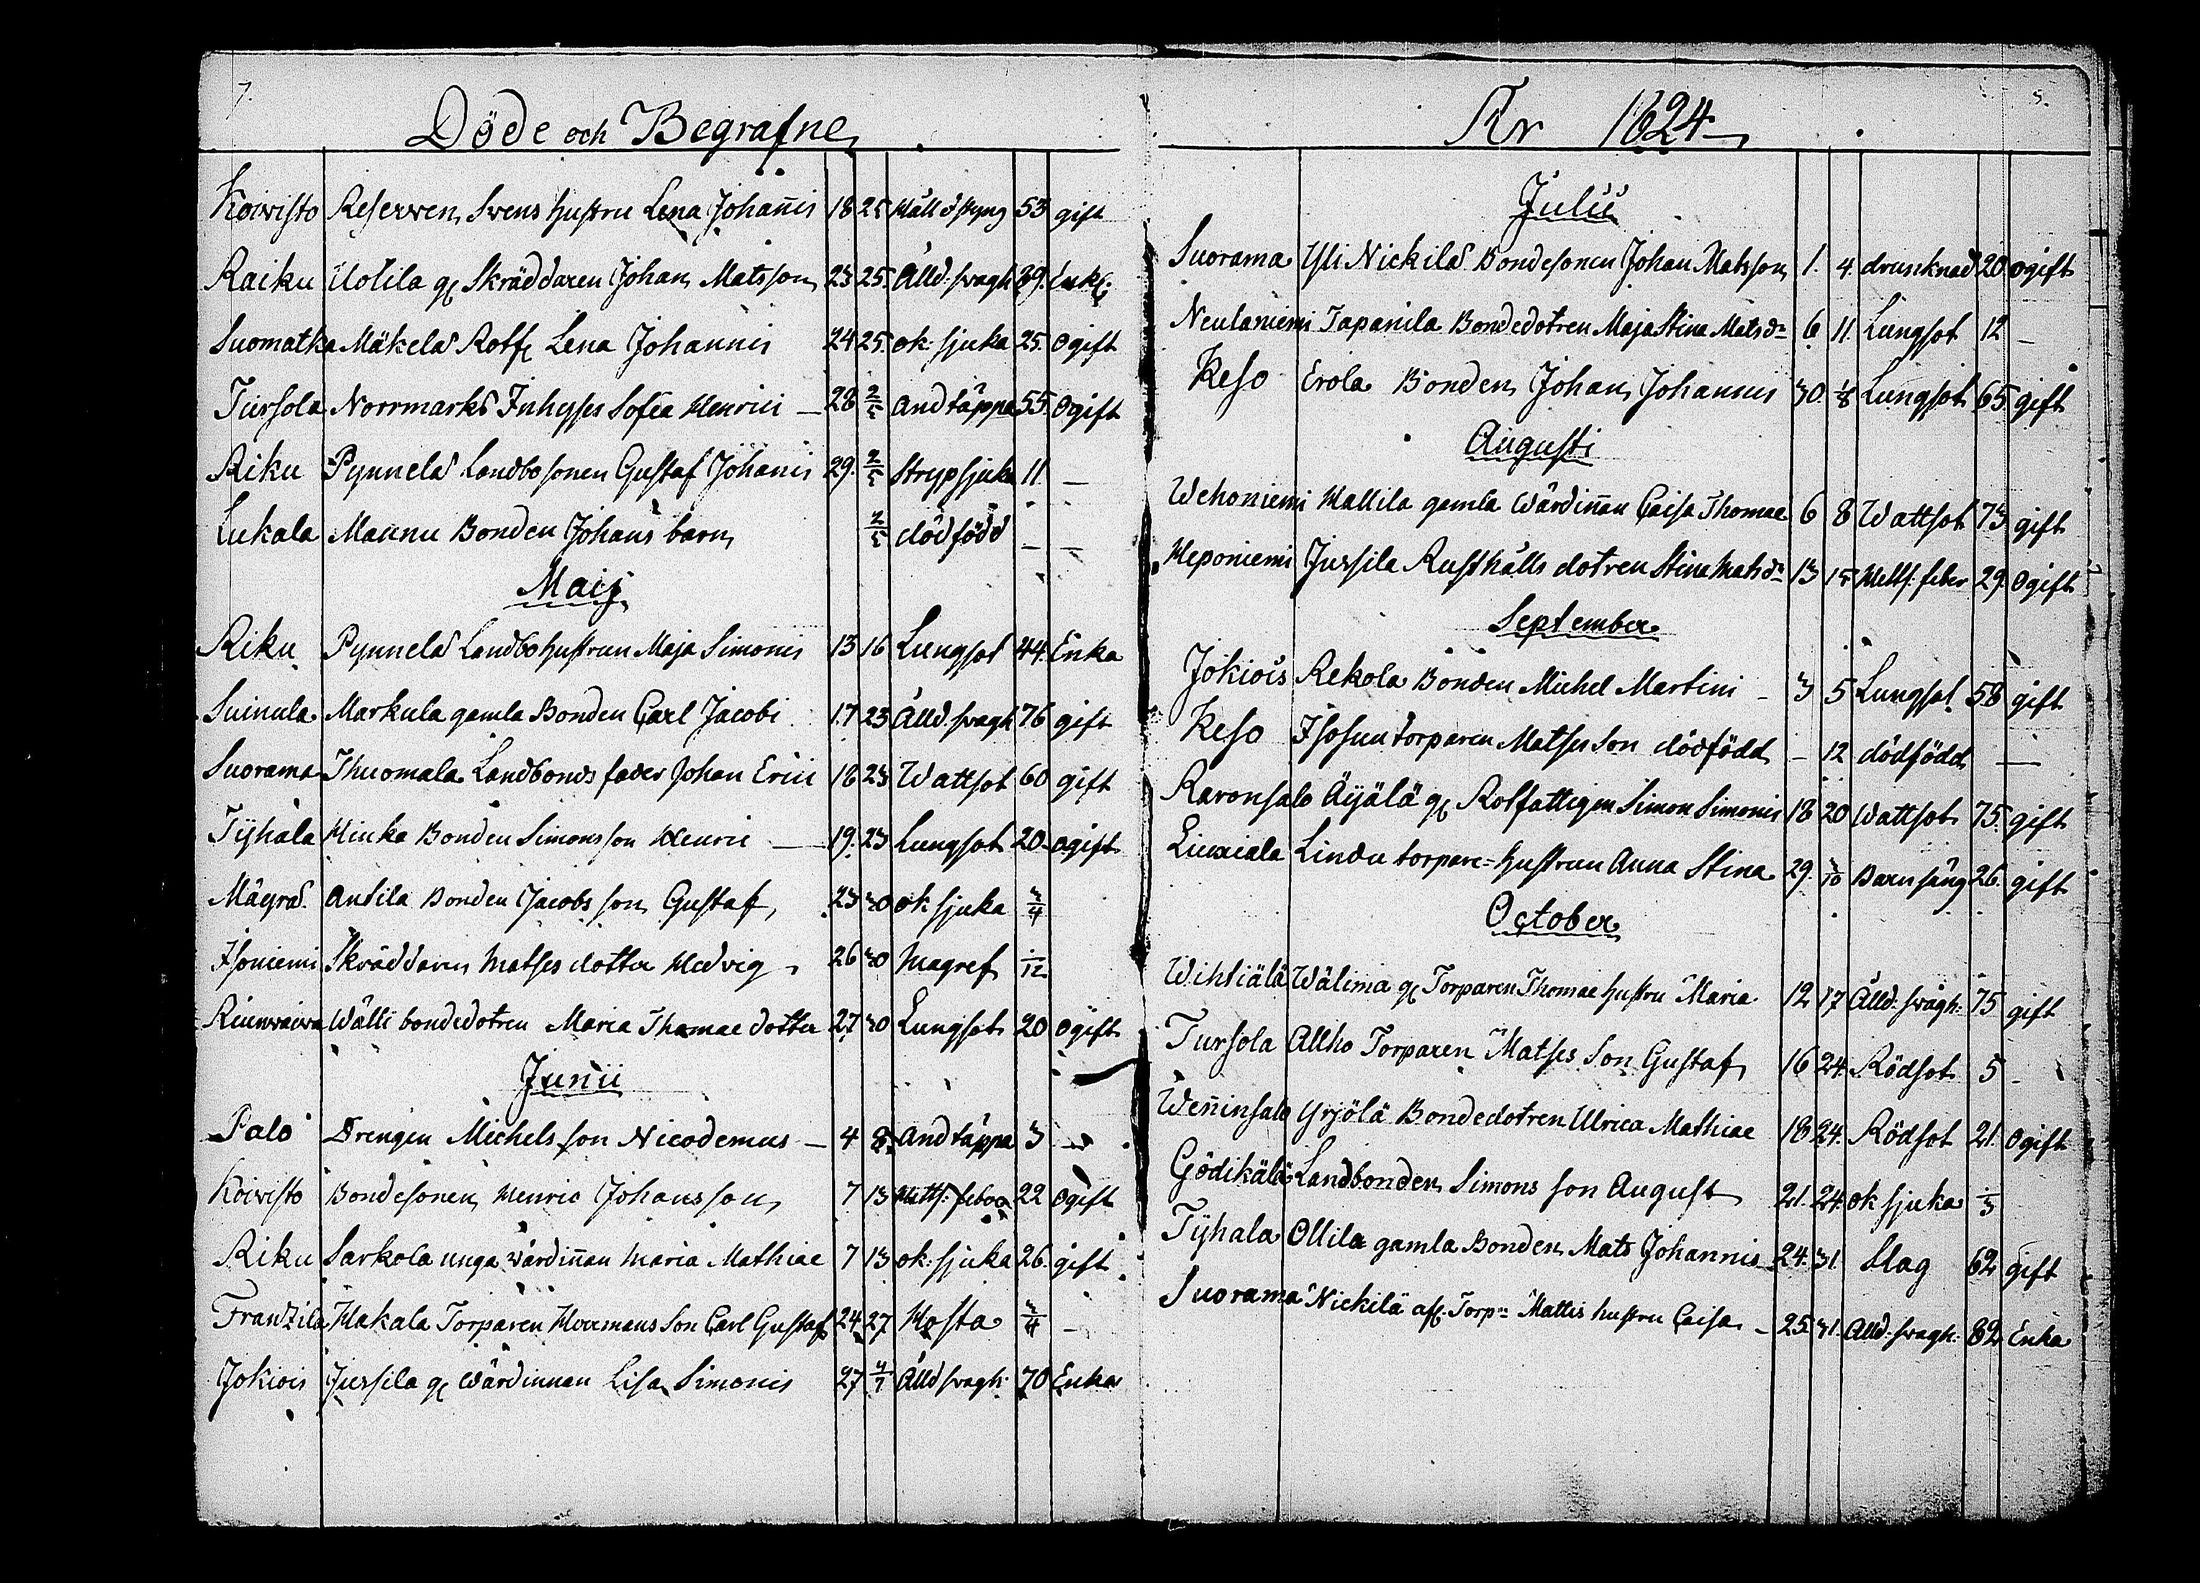 7.
Döde och Begrafne
Koivisto Reserven Svens hustru Lena Johan̄is 18 25 Håll o styng 53 gift
Raiku Uotila g: Skräddaren Johan Matsson 23 25. Ålld: svagh 89. Enkl:
Suomatka Mäkelä Rotf: Lena Johannis 24 25. ok: sjuka 25. Ogift
Tursola Norrmarks Inhyses Sofia Henrici — 28 2/5 andtäppa 55. Ogift
Riku Pynnelä Landbosonen Gustaf Johanis 29. 2/5 Strypsjuka 11. —
Lukala Maunu Bonden Johans barn 2/5 dödfödd — —
Maij
Riku Pynnelä Landbohustrun Maja Simonis 13 16 Lungsot 44. Enka
Suinula Markula gamla Bonden Carl Jacobi 17 23 Ålld: svagh 76 gift
Suorama Thuomala Landbonds fader Johan Erici 18 23 Wattsot 60 gift
Tÿhälä Hinka Bonden Simons son Henric — 19. 23 Lungsot 20. ogift
Mägrd. Antila Bonden Jacobs son Gustaf 23 30 ok sjuka 3/4
Isoniemi Skräddaren Matses dotter Hedvig 26 30 Magref /12
Wälli bondedotren Maria Thomae dotter 27 30 Lungsot 20 ogift
Junii
Palo Drengen Michels son Nicodemus — 4 8 Andtäppa 3 —
Koivisto Bondesonen Henric Johansson 7 13 22 Ogift
Riku Sarkola unga värdin̄an Maria Mathiae 7 13 ok: sjuka 26. gift
Frantzila Hakala Torparen Hermans Son Carl Gustaf 24 27 Hosta 3/4 —
Jokiois Jussila g: Wärdinnan Lisa Simonis 27 4/7 Ålld svagh 70 Enka
År 1824 5.
Julii
Suorama Yli Nickilä Bondesonen Johan Matsson 1. 4 drunknad 20 ogift
Neulaniemi Tapanila Bondedotren Maja Stina Matsdr 6 11. Lungsot 12 —
Keso Erola Bonden Johan Johannis 30. 1/8 Lungsot 65. gift
Augusti
Wehoniemi Mattila gamla Wärdin̄an Caisa Thomae 6 8 Wattsot 73 gift
Heponiemi Jussila Rusthålls dotren Stina Matsdr 13 15 Hetts: feber 29. Ogift
September
Jokiois Rekola Bonden Michel Martini — 3 5 Lungsot 58 gift
Keso Isosuu torparen Matses son dödfödd — 12 dödfödd —
Raronsalo Äijälä g: Rotfattigen Simon Simonis 18 20 Wattsot 75. gift
Liuxiala Lindu torpare-hustrun Anna Stina 29. 3/10 Barnsäng 26. gift
October
Wihtiälä Wälimä g: Torparen Thomae hustru Maria 12 17 Ålld: svagh: 75 gift
Tursola Allho Torparen Matses Son Gustaf 16 24. Rödsot 5 —
Wen̄insalo Yrjölä Bondedotren Ulrica Mathiae 18 24. Rödsot 21. Ogift
Gödikälä Landbonden Simons son August 21. 24. ok sjuka /3
Tÿhälä Ollila gamla Bonden Mats Johannis 24. 31. Slag 62 gift
Suorama Nickilä afl: Torpn Mattis hustru Caisa — 25. 31. Ålld: svagh: 82 Enka